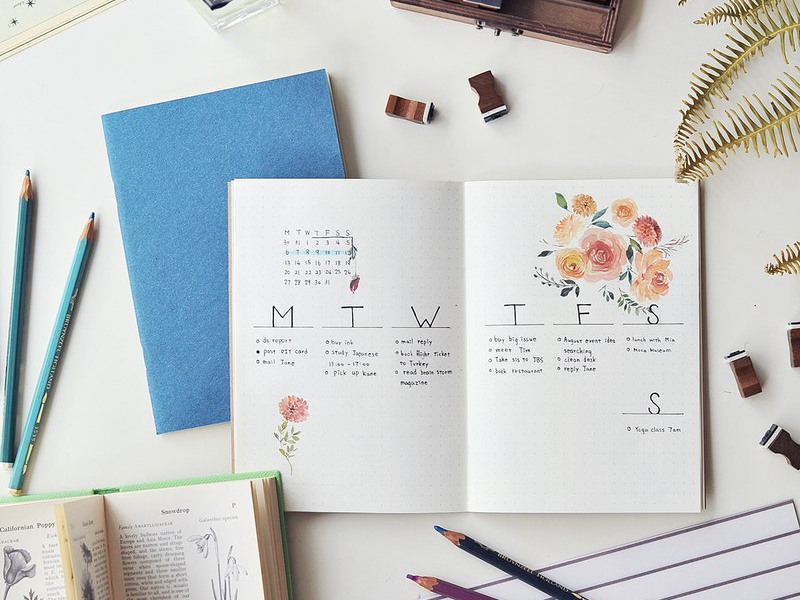 M T W T F S S
30 31 1 2 3 4 5
6 7 8 9 10 11 12
13 14 15 16 17 18 19
20 21 22 23 24 25 26
27 28 29 30 31
M
do report
post DIY card
mail Jane
T
buy ink
study Japanese
13:00 - 17:00
pick up kane
W
mail reply
book flight ticket
to Turkey
read brain storm
magazine
T
buy big issue
meet Tim
Take sis to TBS
book restaurant
F
August event idea
searching
clean desk
reply Jane
S
lunch with Mia
Moca Museum
S
Yoga class 7am
Californian Poppy
Snowdrop
P.
Family AMARYLLIDACEAE
Galanthus species
A lovely bulbous native of
Europe and Asia Minor. The